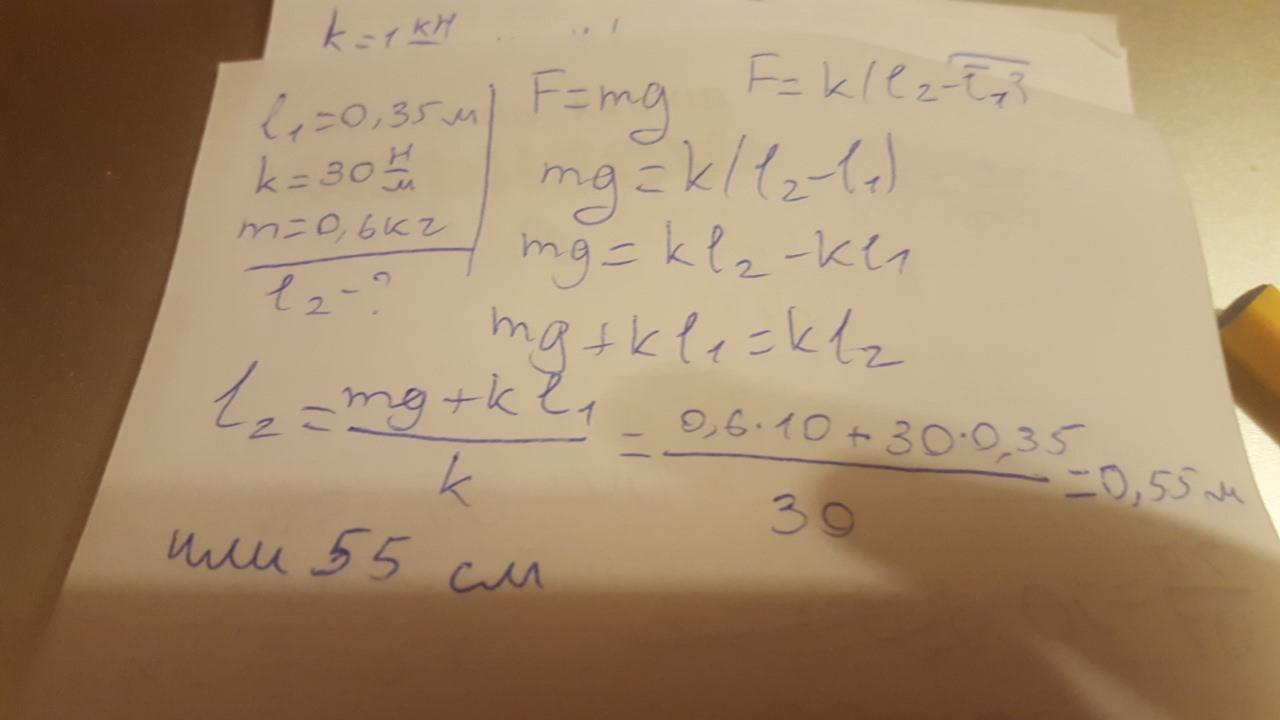 k=1 кН
l₁=0,35м
k=30 Н/м
m=0,6кг
l₂-?
F=mg F=k(l₂-l₁)
mg=k(l₂-l₁)
mg=kl₂-kl₁
mg+kl₁=kl₂
l₂=(mg+kl₁)/k=(0,6·10+30·0,35)/30=0,55м
или 55 см